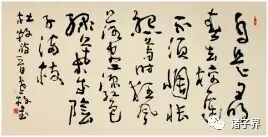 自是尋
春去校遲
不須惆悵
怨芳時狂風
落盡深紅色
綠葉成陰
子滿枝
杜牧詩
诸子界